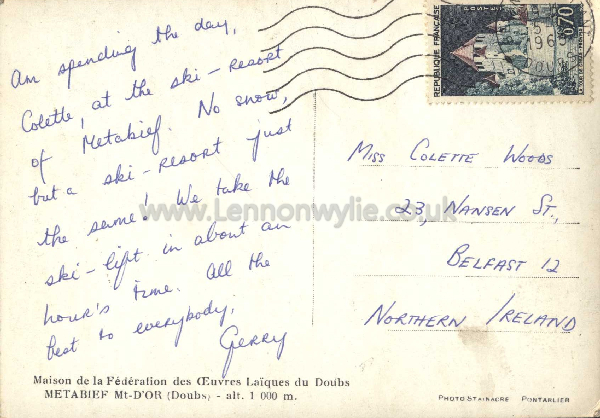 Am spending the day,
Colette, at the ski-resort
of Metabief. No snow,
but a ski-resort just
the same! We take the
ski-lift in about an
hour's time. All the
best to everybody,
Gerry
Miss Colette Woods
23, Nansen St.,
Belfast 12
Northern Ireland
REPUBLIQUE FRANÇAISE
POSTES
0,70
196
www.Lennonwylie.co.uk
Maison de la Fédération des Œuvres Laïques du Doubs
METABIEF Mt-D'OR (Doubs) - alt. 1 000 m.
PHOTO STAINACRE PONTARLIER